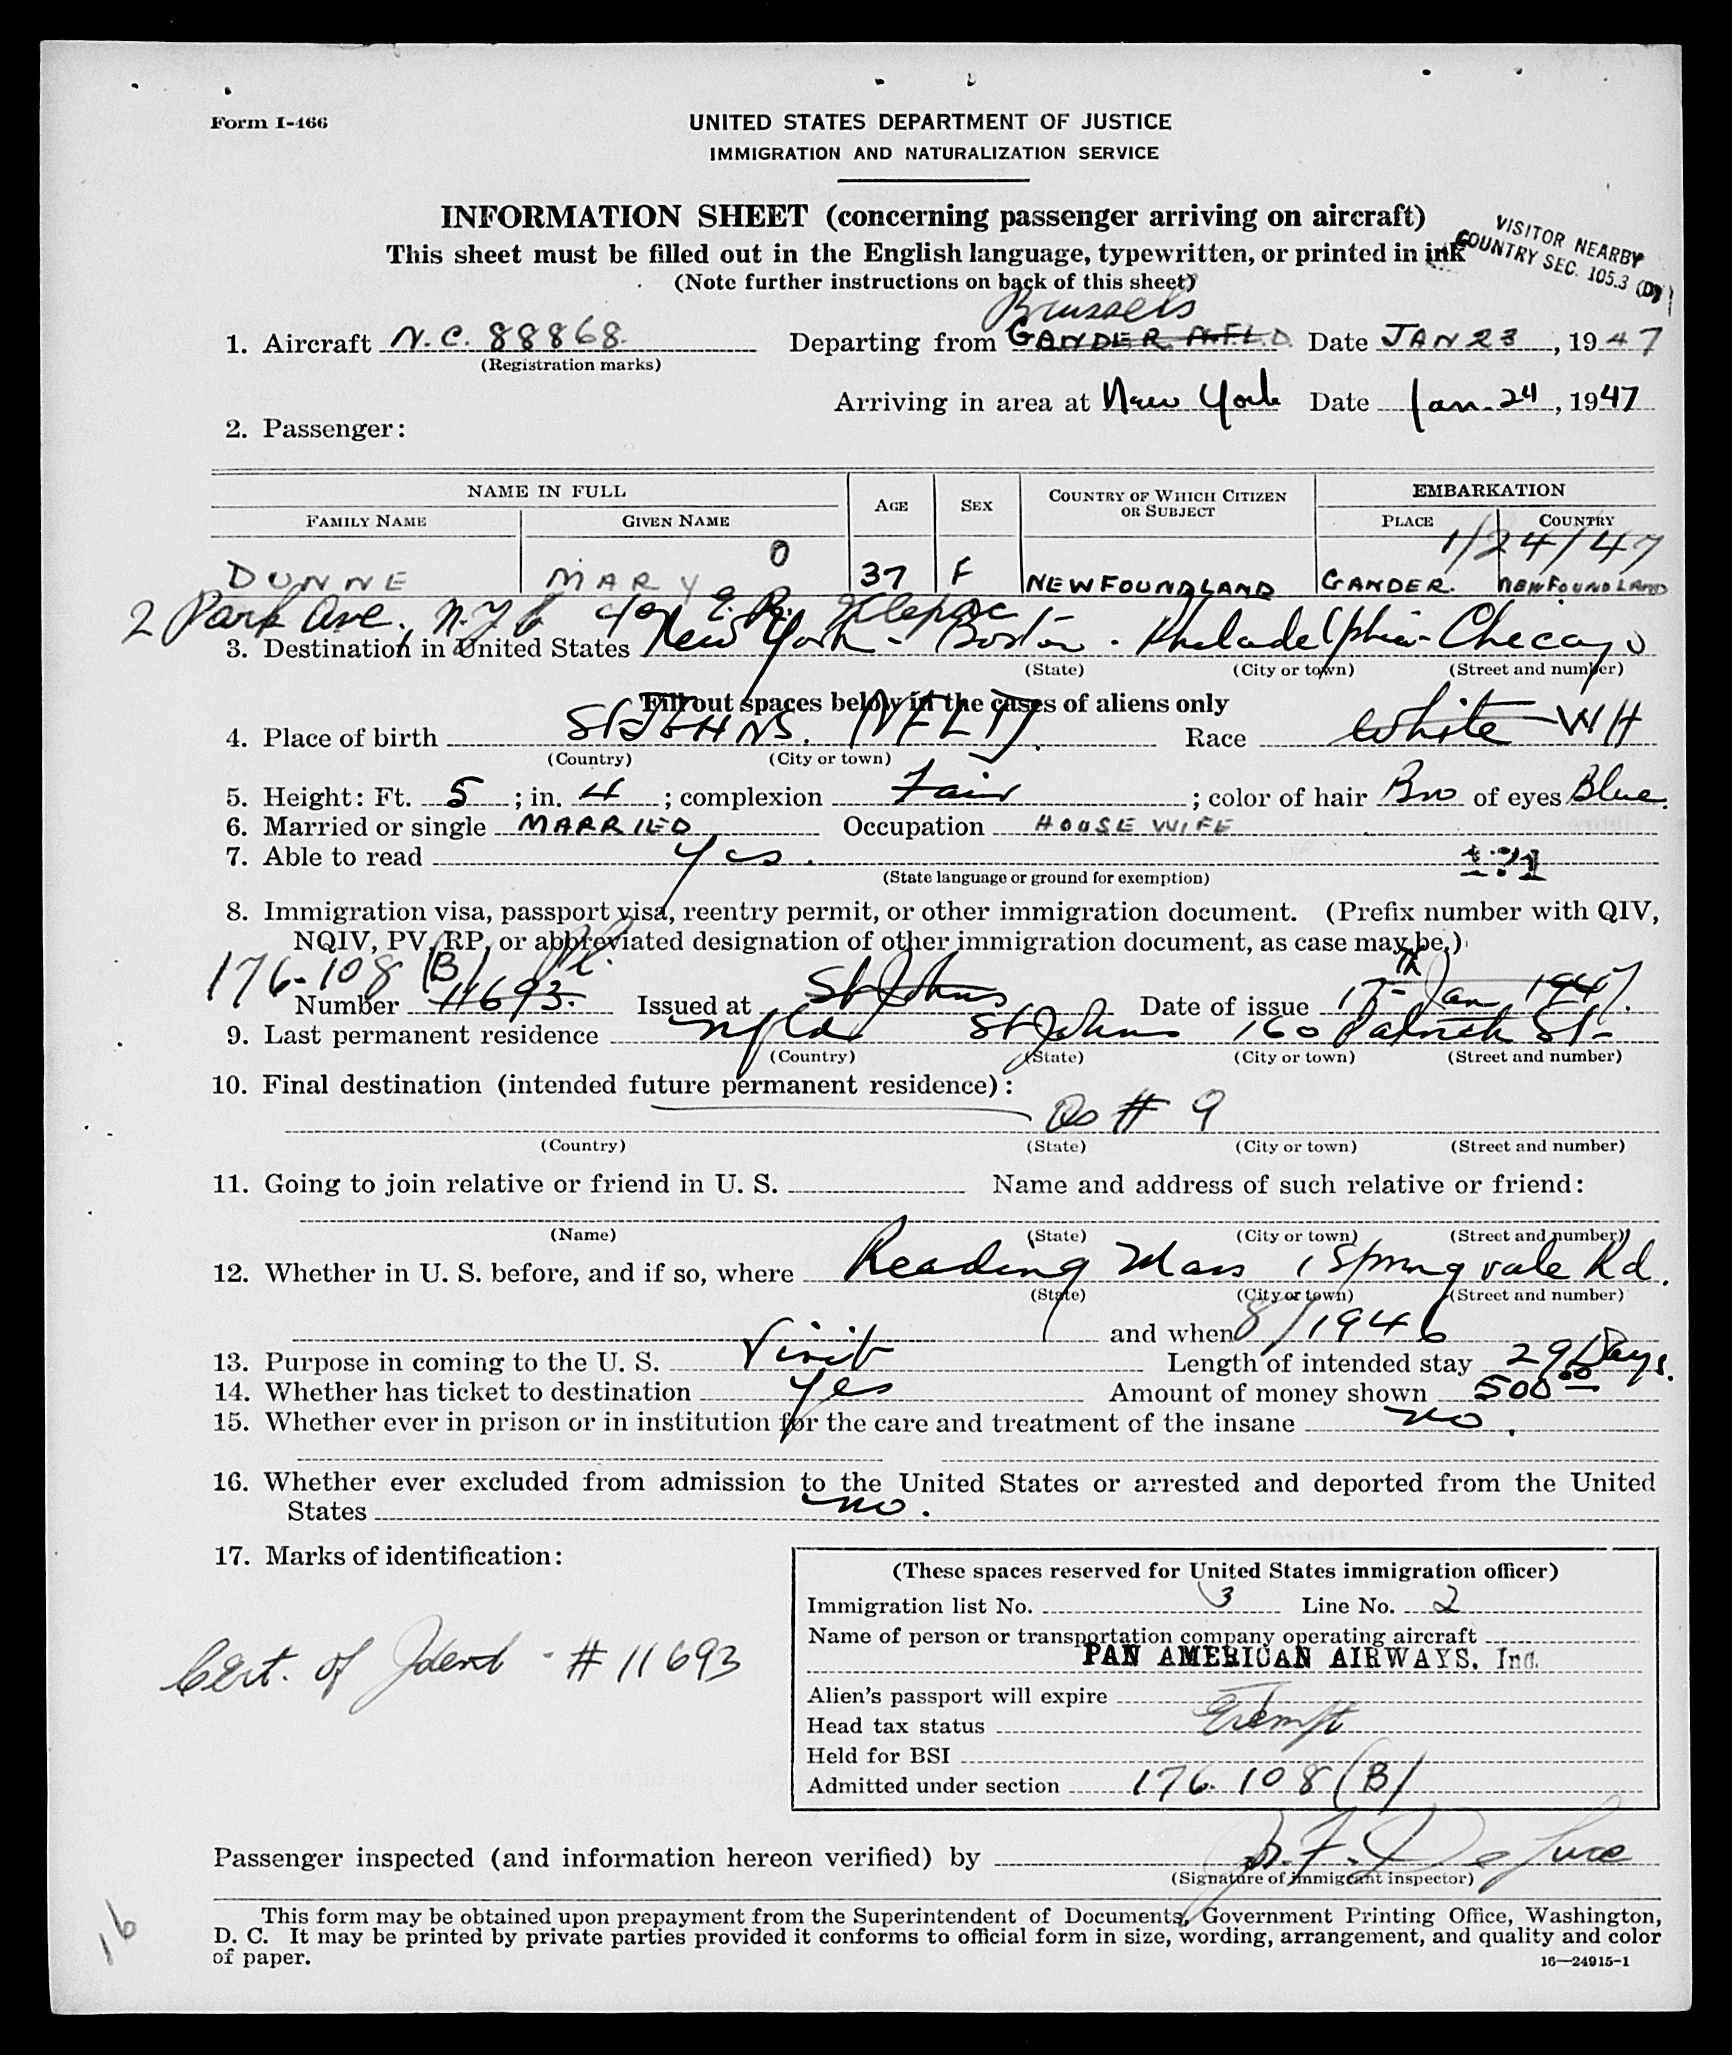 Form I-466
UNITED STATES DEPARTMENT OF JUSTICE
IMMIGRATION AND NATURALIZATION SERVICE
INFORMATION SHEET (concerning passenger arriving on aircraft)
This sheet must be filled out in the English language, typewritten, or printed in ink
(Note further instructions on back of this sheet)
VISITOR NEARBY
COUNTRY SEC. 105.3 (D)
Brussels
1. Aircraft N.C. 88868. Departing from GANDER N.F.L.D. Date JAN 23, 1947
(Registration marks)
Arriving in area at New York Date Jan. 24, 1947
2. Passenger:
NAME IN FULL AGE SEX COUNTRY OF WHICH CITIZEN OR SUBJECT EMBARKATION
FAMILY NAME GIVEN NAME PLACE COUNTRY
0 1/24/47
DUNNE MARY 37 F NEWFOUNDLAND GANDER. NEWFOUNDLAND
2 Park Ave. N.Y.C
3. Destination in United States New York - Boston - Philadelphia - Chicago
(State) (City or town) (Street and number)
Fill out spaces below in the cases of aliens only
4. Place of birth ST JOHNS. NFLD. Race White WH
(Country) (City or town)
5. Height: Ft. 5; in. 4; complexion Fair; color of hair Bro of eyes Blue.
6. Married or single MARRIED Occupation HOUSE WIFE
7. Able to read Yes.
(State language or ground for exemption)
8. Immigration visa, passport visa, reentry permit, or other immigration document. (Prefix number with QIV,
NQIV, PV, RP, or abbreviated designation of other immigration document, as case may be.)
176.108 (B)
Number 11693. Issued at St Johns Date of issue 17th Jan 1947.
9. Last permanent residence Nfld St Johns 160 Patrick St-
(Country) (State) (City or town) (Street and number)
10. Final destination (intended future permanent residence):
As # 9
(Country) (State) (City or town) (Street and number)
11. Going to join relative or friend in U. S. Name and address of such relative or friend:
(Name) (State) (City or town) (Street and number)
12. Whether in U. S. before, and if so, where Reading Mass 1 Springvale Rd.
(State) (City or town) (Street and number)
and when 8/1946
13. Purpose in coming to the U. S. Visit Length of intended stay 29 Days.
14. Whether has ticket to destination Yes Amount of money shown 500.00
15. Whether ever in prison or in institution for the care and treatment of the insane no.
16. Whether ever excluded from admission to the United States or arrested and deported from the United
States no.
17. Marks of identification:
Cert. of Ident - # 11693
(These spaces reserved for United States immigration officer)
Immigration list No. 3 Line No. 2
Name of person or transportation company operating aircraft
PAN AMERICAN AIRWAYS, Inc.
Alien's passport will expire
Head tax status Exempt
Held for BSI
Admitted under section 176.108 (B)
Passenger inspected (and information hereon verified) by
(Signature of immigrant inspector)
This form may be obtained upon prepayment from the Superintendent of Documents, Government Printing Office, Washington,
D. C. It may be printed by private parties provided it conforms to official form in size, wording, arrangement, and quality and color
of paper.
16—24915-1
16